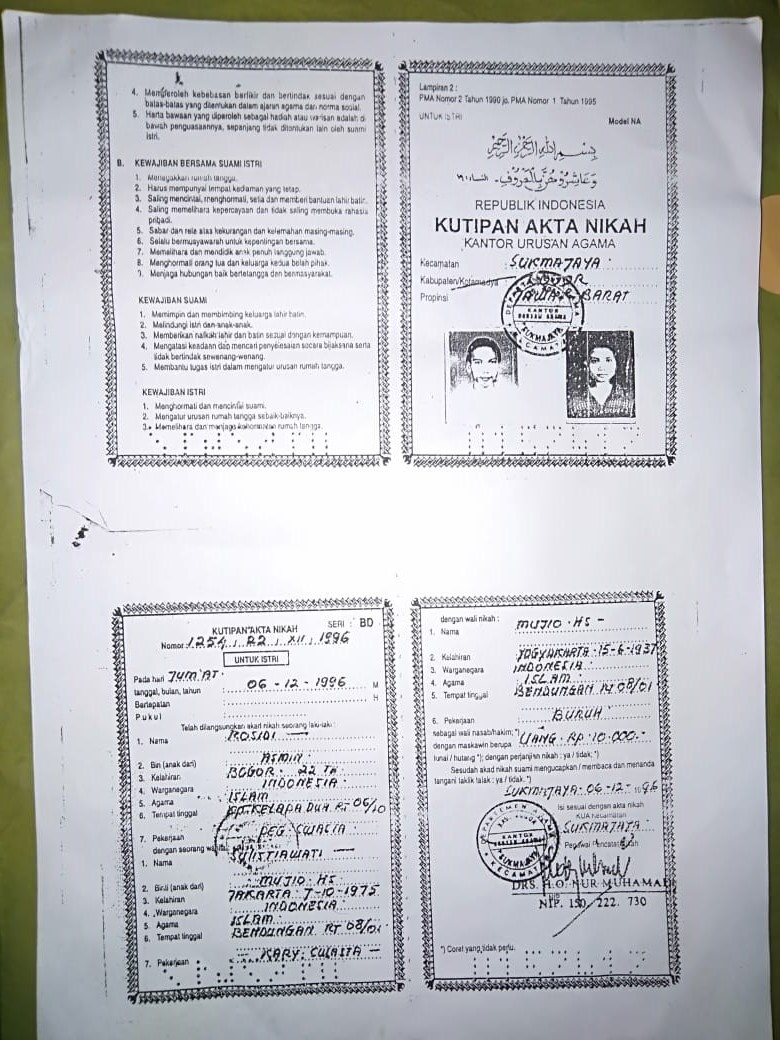 4. Memperoleh kebebasan berfikir dan bertindak sesuai dengan
batas-batas yang ditentukan dalam ajaran agama dan norma sosial.
5. Harta bawaan yang diperoleh sebagai hadiah atau warisan adalah di
bawah penguasaannya, sepanjang tidak ditentukan lain oleh suami
istri.
B. KEWAJIBAN BERSAMA SUAMI ISTRI
1. Menegakkan rumah tangga.
2. Harus mempunyai tempat kediaman yang tetap.
3. Saling mencintai, menghormati, setia dan memberi bantuan lahir batin.
4. Saling memelihara kepercayaan dan tidak saling membuka rahasia
pribadi.
5. Sabar dan rela atas kekurangan dan kelemahan masing-masing.
6. Selalu bermusyawarah untuk kepentingan bersama.
7. Memelihara dan mendidik anak penuh tanggung jawab.
8. Menghormati orang tua dan keluarga kedua belah pihak.
9. Menjaga hubungan baik bertetangga dan bermasyarakat.
KEWAJIBAN SUAMI
1. Memimpin dan membimbing keluarga lahir batin.
2. Melindungi istri dan anak-anak.
3. Memberikan nafkah lahir dan batin sesuai dengan kemampuan.
4. Mengatasi keadaan dan mencari penyelesaian secara bijaksana serta
tidak bertindak sewenang-wenang.
5. Membantu tugas istri dalam mengatur urusan rumah tangga.
KEWAJIBAN ISTRI
1. Menghormati dan mencintai suami.
2. Mengatur urusan rumah tangga sebaik-baiknya.
3. Memelihara dan menjaga kehormatan rumah tangga.
Lampiran 2 :
PMA Nomor 2 Tahun 1990 jo. PMA Nomor 1 Tahun 1995
UNTUK ISTRI
Model NA
بسم الله الرحمن الرحيم
وعاشروهن بالمعروف
REPUBLIK INDONESIA
KUTIPAN AKTA NIKAH
KANTOR URUSAN AGAMA
Kecamatan : SUKMAJAYA
Kabupaten/Kotamadya : BOGOR
Propinsi : JAWA BARAT
KANTOR
URUSAN AGAMA
SUKMAJAYA
KECAMATAN
KUTIPAN AKTA NIKAH SERI : BD
Nomor : 1254, 22, XII, 1996
UNTUK ISTRI
Pada hari JUM'AT
tanggal, bulan, tahun 06 - 12 - 1996 M
Bertepatan H
Pukul
Telah dilangsungkan akad nikah seorang laki-laki :
1. Nama ROSIDI
2. Bin (anak dari) ASMIN
3. Kelahiran BOGOR. 22 TH
4. Warganegara INDONESIA
5. Agama ISLAM
6. Tempat tinggal KP. KELAPA DUA RT 06/10
7. Pekerjaan PEG. SWASTA
dengan seorang
1. Nama SULISTIAWATI
2. Binti (anak dari) MUJIO. HS
3. Kelahiran JAKARTA 7-10-1975
4. Warganegara INDONESIA
5. Agama ISLAM
6. Tempat tinggal BENDUNGAN RT 08/01
7. Pekerjaan KARY. SWASTA
dengan wali nikah :
1. Nama MUJIO. HS -
2. Kelahiran YOGYAKARTA. 15-6-1937
3. Warganegara INDONESIA
4. Agama ISLAM
5. Tempat tinggal BENDUNGAN 08/01
6. Pekerjaan BURUH
sebagai wali nasab/hakim; *)
dengan maskawin berupa UANG. RP 10.000.-
tunai / hutang *); dengan perjanjian nikah : ya / tidak; *)
Sesudah akad nikah suami mengucapkan / membaca dan menanda
tangani taklik talak : ya / tidak. *)
SUKMAJAYA. 06-12-1996
Isi sesuai dengan akta nikah
KUA Kecamatan
SUKMAJAYA
Pegawai Pencatat Nikah
DEPARTEMEN AGAMA
KANTOR
URUSAN AGAMA
SUKMAJAYA
KECAMATAN
DRS. H.O. NUR MUHAMAD
NIP. 150. 222. 730
*) Coret yang tidak perlu.